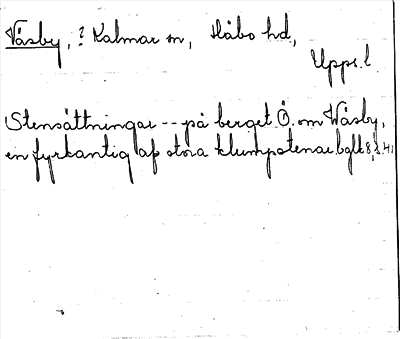 Väsby, ? Kalmar sn, Håbo hd,
Upps. l.
Stensättningar -- på berget Ö. om Väsby,
en fyrkantig af stora klumpstenar